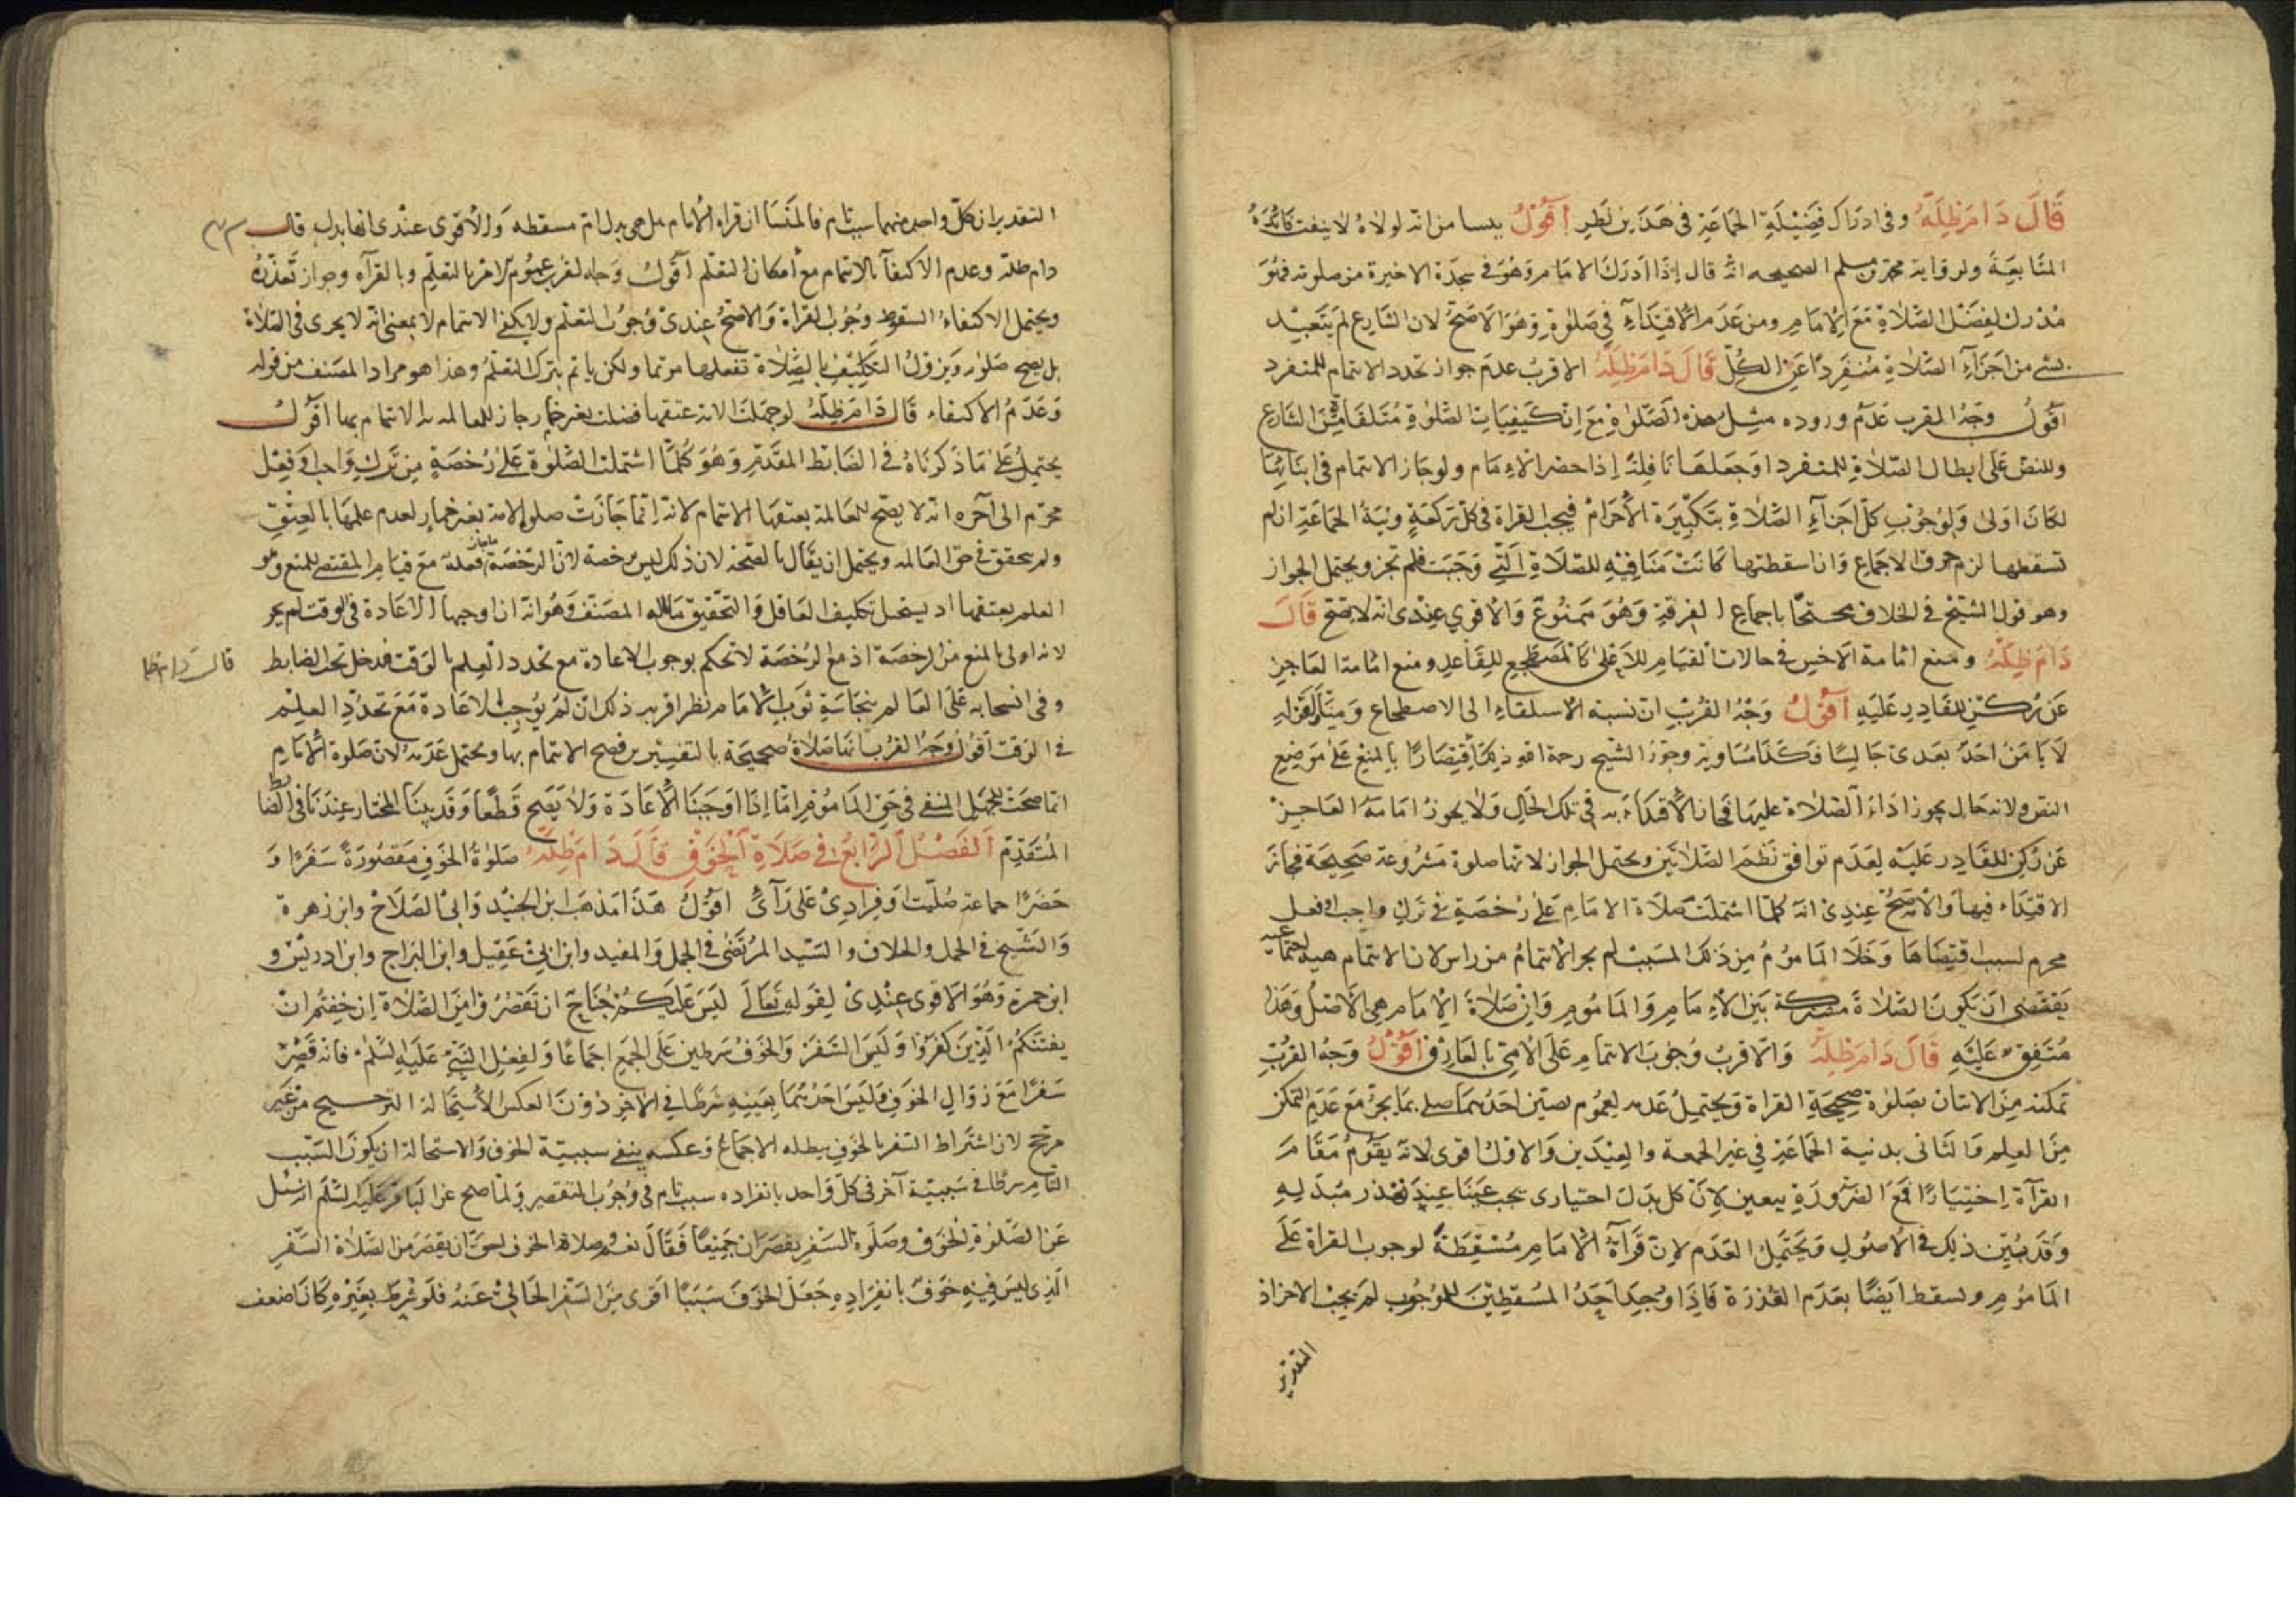 قَالَ دَامَ ظِلُّهُ وفى ادراك فَضِيْلَةِ الجَمَاعَةِ فى هَذَين نَظر أَقُوْلُ ينشا من انه لولاهُ لانتفت فائدة
المتَابعَةَ ولرواية محمد بن مسلم الصحيحه انه قال اِذَا اَدرَكَ الامَام وَهُوَ فى سجدَة الاخيرة من صلوته فهُوَ
مُدْرك لِفَضْل الصَّلاةِ مَعَ الإمَامِ ومن عَدَم الاقتِدَاءِ فِي صَلوةٍ وَهُوَ الاَصَحّ لان الشارع لم يتَعَبِد
بشئ من اجزَآءِ الصَّلاةِ مُنفَرِدًا عَنِ الكُلِّ قَالَ دَامَ ظِلُّهُ الاقربُ عدَم جواز تجدد الايتمام للمنفرد
اقُولُ وجهُ القرب عَدَم وروده مِثل هذه الصَّلوة مَعَ اِنّ كَيفِيَات الصَّلوةِ مُتَلقَاة مِنَ الشَارع
وللنصّ عَلَى ابطال الصّلاةِ للمنفرد اوجَعلهَا نَافِلَةً اِذا حضر الاِمَام ولوجَاز الايتمام فى اثنَائِهَا
لكَانَ اَولى وَلِوُجُوبِ كلّ اجزآءِ الصَّلاةِ بتَكْبِيْرَة الأحرَامِ فيجب القراة فى كلّ ركعَةٍ ونيّةُ الجَمَاعَةِ ان لم
تسقطها لزم خرق الاجماع وَان اسقطتها كَانَتْ مَنَافِيَةٍ للصّلَاةِ اَلّتِي وَجَبَت فلم تجز ويحتمل الجواز
وهو قول الشيْخ فى الخلاف محتجًا باجماع الفرقةِ وَهُوَ مَمنُوعٌ وَالاقوي عِنْدى انه لايصح قَالَ
دَامَ ظِلُّهُ ومنع امامة الاخسّ فى حالات القيَامِ للاَعْلى كَالمضطجع لِلقَاعِد ومنع امامة العَاجز
عَنْ رُكنٍ للقَادِرِ عَلَيهِ أَقُوْلُ وَجْهُ القُربْ انّ نسبة الاستلقاءِ الى الاضطجاع وَمثله لقوله
لَا يَامَنُ احَدٌ بعَدى جَالِسًا فكَذَا مُسَاويه وجوّز الشيخ رحمة الله ذلِك اقتِصَارًا بِالمنعِ عَلى مَوضِعِ
النصّ ولانه حَال يجوز ادَاء الصّلاة عليها فجاز الاقتداء به فِي تلكَ الحَالِ وَلَا يجوزُ امَامَةُ العَاجِزْ
عَنْ رُكنٍ للقَادِر عَليَهِ لِعَدَم توافق نَظْم الصَّلاتَيْنِ ويحتمل الجواز لانها صلوة مَشرُوعة صَحِيحَة فجاز
الاقتِدَاء فيها وَالاَصَحّ عِنِدِى انّه كلمّا اشتملَتْ صَلَاة الامَامِ عَلى رُخصَةٍ فى تَركِ واجب او فعل
محرم لسبب اقتضَاهَا وَخَلَا المَامومُ مِن ذَلكَ السَبَب لم يجز الاِئتمامُ من راس لان الايتمام هيئة اجتماعية
يَقتَضى اَن يَكونَ الصَّلَاةُ مشتركة بَيْن الاِمَامِ وَالمَامُومِ وَاِنَّ صَلَاةَ الإمَام هِى الاَصْلُ وَهَذا
مُتَفِقٌ عَليَهِ قَالَ دَامَ ظِلُّهُ وَالاقربُ وُجُوبُ الايتمامِ عَلَى الأمّيّ بِالعَارِف أَقُوْلُ وَجْهُ القُرْبِ
تمكنه مِنَ الاتيان بصَلوة صحِيْحَةِ القراة وَيحتمِلُ عَدمه لِعموم نصين احَدُهُمَا صلى بمَا يجزِ مَعَ عَدَمِ التمكن
مِنَ العِلم وَالثَانى بدنية الجَمَاعَةِ فِي غير الجمعة والعِيْدَين وَالاولُ اقوى لانه يَقُوْمُ مَقَامَ
القراَة اِختِيَارًا فَمَعَ الضَرورَةِ يتعين لِاَنّ كل بدَل اختيارى يجب عَيْنَا عِنِدَ تعذر مُبدَلِهِ
وَقَد بُيِّن ذلِك فى الاُصولِ وَيَحتَمِلُ العَدَم لِاِنّ قراَةَ الامَامِ مُسْقِطَةٌ لوجوب القراة عَلَى
المَامُومِ ويسقط ايَضًا بعَدَم القدْرَة فَاِذَا وُجِدَ احَدُ المُسْقطِيْنَ للوجُوب لم يجبْ الاخر اذ
التقدير
التقدير ان كلّ واحد منهما سبب تام فالمنشا ان قراة الامام هل هى بدل ام مسقطه وَالاقوى عندى انها بدل قال
دام ظلّه وعدم الاكتفآ بالايتمام مع امكان التعلّم أقولُ وَجه القرب عموم الامر بالتعلّم وبالقرآه وجواز تعذّره
ويحتمل الاكتفاءُ لسقوط وجُوْب القراة وَالاصحّ عندى وُجوبُ التعلم ولايكفى الايتمام لا بمعنى انه لا يجزى فى الصّلاة
بل يصح صَلوته ويزول التكليْف بالصَّلاة تفعلها مؤتما ولكن ياثم بترك التعلّم وهذا هو مراد المصنف من قوله
وَعَدَمُ الاكتفاء قال دَامَ ظلّهُ لو جهلت الامة عتقها فصلت بغير خمارٍ جاز للعالمة به الايتمام بها اقُوْلُ
يحتمِلُ عَلى مَا ذَكرنَاهُ فى الضَابط المقدّم وَهُوَ كُلّمَا اشتملت الصَّلوة عَلى رُخصَةٍ مِنْ تركِ وَاجب اَو فِعْل
محرّم الى آخره انه لا يصّح للعَالمة بعتقها الايتمام لانه اِنّما جَازت صلوة الامة بغير خمار لعدم علمِهَا بالعِتْقِ
ولم يتحقق فى حق العَالمه ويحتمل ان يقَال بالصّحة لان ذلك ليس برخصة لانّ الرّخصَة ماجاز فعله مع قيام المقتضى للمنع وهو
العلم بعتقها اذ يستحيل تكليف الغَافل وَالتحقيق ماقاله المصَنّف وَهُوَ انه ان اوجبنا الاعَادة فى الوقت لم يجز
لانه اولى بالمنع من الرخصَة اذ مع الرخصَة لا نحكم بوجوب الاعادة مع تجدد العِلم بالوَقت فدخل تحت الضابط
قال دام ظله
وفى انسحابه عَلى العَالم بنجَاسَةِ ثوب الامَام نظر اقربه ذلك ان لم نُوجِب الاعَادة مَعَ تجدّدِ العِلْم
فى الوقت اقول وَجهُ القرب انها صَلاةٌ صَحيْحَة بالتفسيرين فصح الايتمام بها ويحتمل عَدَمه لان صَلوة الامَامِ
انما صحت للجهل المنفى فى حَقّ المَامُوم امَّا اِذَا اوجَبنَا الاعَادَة وَلَا يَصّح قَطعًا وقَد بيّنَا المختار عِندَنَا فى الضابط
المُتَقدِم اَلفَصْلُ اَلرَّابعُ فى صَلَاةِ اَلخَوْفِ قَالَ دَامَ ظِلُّه صَلوةُ الخَوفِ مَقصُورَةً سَفرًا وَ
حَضَرًا جماعة صُلّيت اَو فرادى عَلى رَأىٍ اقُولُ هَذَا مَذهَب ابن الجنيْد وَابى الصَلَاح وابن زهرة
وَالشّيخ فى الجمل والخلاف والسَّيّد المُرْتَضى فى الجمل وَالمفيد وابن ابىْ عَقِيل وابن البرَّاج وابن ادريْسْ و
ابن حمزة وَهُوَ الاقوى عِنْدِىْ لِقوله تَعَالىَ لَيْسَ عَلَيكُمْ جُنَاحٌ ان تَقصُرُوا مِنَ الصَّلَاة اِن خِفْتُم انْ
يفتنَكُمُ الّذِينَ كفَرُوا وَلَيْسَ السَّفَرُ وَالخَوفُ شرطين عَلى الجَمع اجماعًا وَلفِعل النَبّىْ عَلَيهِ السَّلَمْ فانه قَصّرَ
سَفرًا مَعَ زوَال الخَوفِ وَلَيسَ احَدُهُمَا بِعَينِهِ شَرطًا فى الاخر دُوْنَ العكس لاستحَالة الترجيح من غير
مرجّح لان اشتَراط السفر بالخوف يبطله الاجماعُ وَعكسه ينفى سببيّة الخوف وَلاستحالة ان يكونَ السَبَب
التام شرطا فى سَببيّة آخر فى كلّ وَاحد بانفراده سبب تام فى وُجُوبُ التقصير وَلما صح عن البَاقر عَليه السَّلَم انه سُئل
عن الصَّلوة الخوف وصَلوةُ السفر يقصرَان جميْعًا فَقَالَ نعم وصلاةُ الخوف احق ان يقصَر من الصّلاة السفَرِ
الّذِى لَيسَ فِيْهِ خَوفٌ بانفِرَادِهِ جَعَلَ الخوفَ سَبَبًا اقوى مِنَ السّفرِ الخَالِىْ عَنهُ فلو شُرِطَ بِغَيْرِه كَانَ اضعف